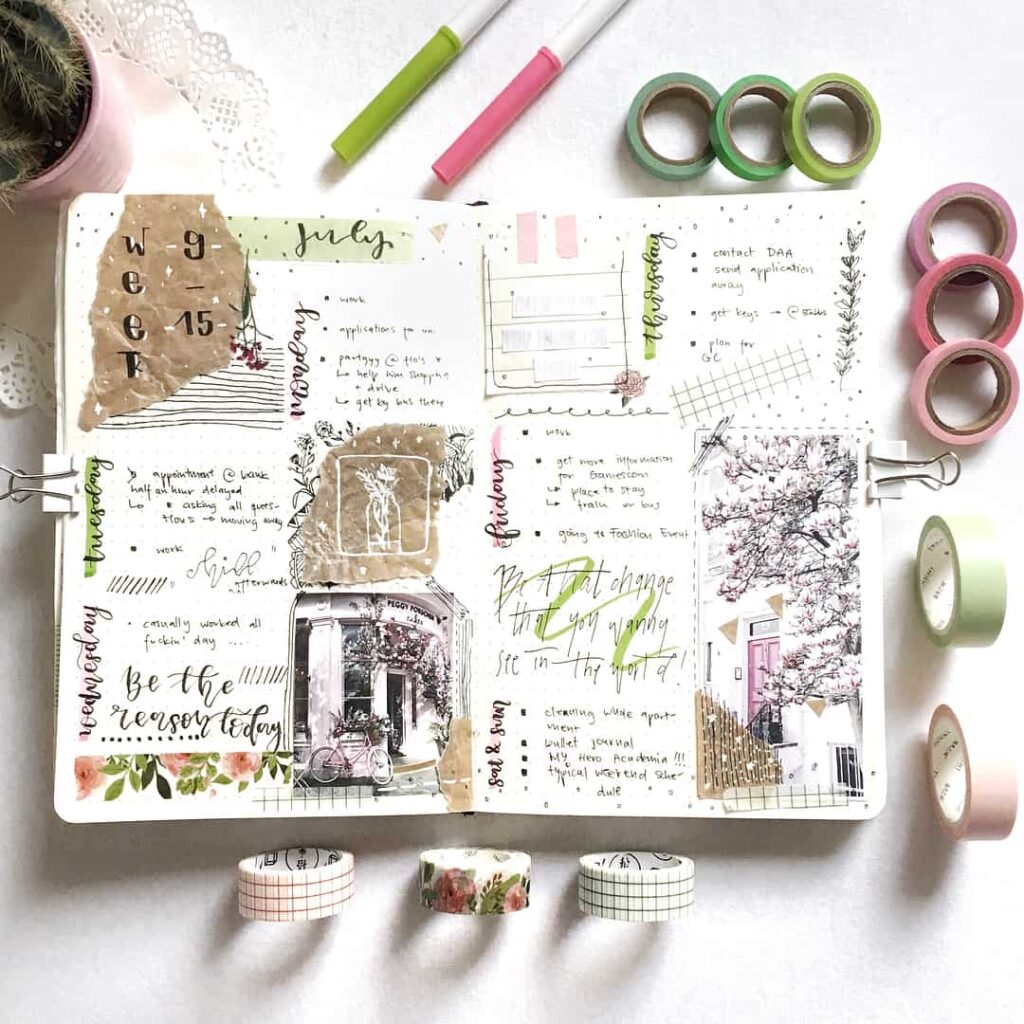 week
9
–
15
July
monday
work
applications to uni
partyyy @ Flo's &
↳ help him shopping
+ drive
↳ get by bus there
tuesday
appointment @ bank
half an hour delayed
↳ asking all ques-
tions → moving away
work
"chill"
afterwards
wednesday
casually worked all
fuckin' day ....
Be the
reason today
PEGGY PORSCHEN
CAKES
thursday
contact DAA
send application
away
get keys → @
plan for
GC
friday
work
get more information
for Gamescom
↳ place to stay
↳ train or bus
going to Fashion Event
Be that change
that you wanna
see in the world!
sat & sun
cleaning whole apart-
ment
bullet journal
MY Hero Academia !!!
typical weekend sche-
dule